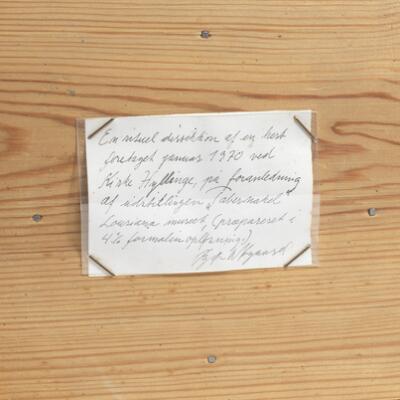 En rituel dissektion af en hest
foretaget januar 1970 ved
Kirke Hyllinge, på foranledning
af udstillingen "Tabernakel"
Louisiana museet, (præpareret i
4% formalinopløsning)